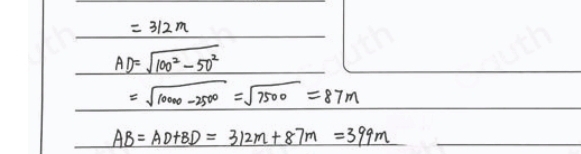 = 312m
AD = √100² - 50²
= √10000 - 2500 = √7500 = 87m
AB = AD+BD = 312m + 87m = 399m